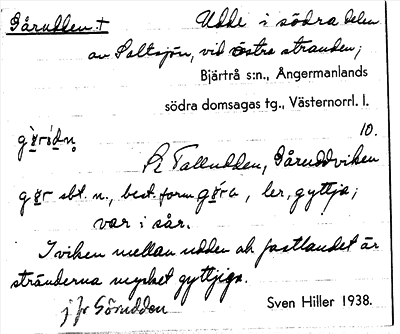 Gårudden. + Udde i södra delen
av Saltsjön, vid östra stranden;
Bjärtrå s:n., Ångermanlands
södra domsagas tg., Västernorrl. l.
10.
På Talludden, Gåruddviken
sbt. n., best. form, ler, gyttja;
var i sår.
I viken mellan udden och fastlandet är
stränderna mycket gyttjiga.
jfr Görudden Sven Hiller 1938.